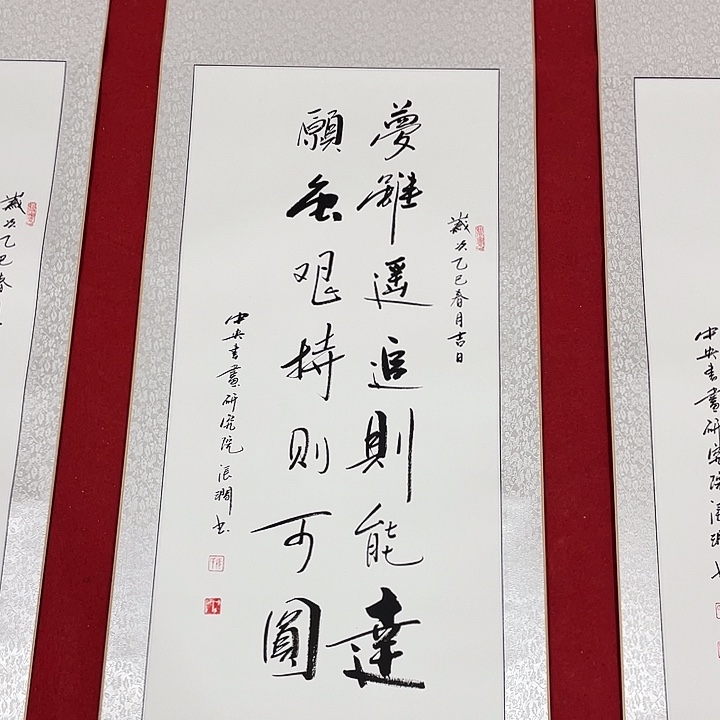 中央書畫研究院
歲次乙巳春月吉日
夢雖遥追則能達
願虽艰持则可圓
中央書畫研究院
歲次乙巳春